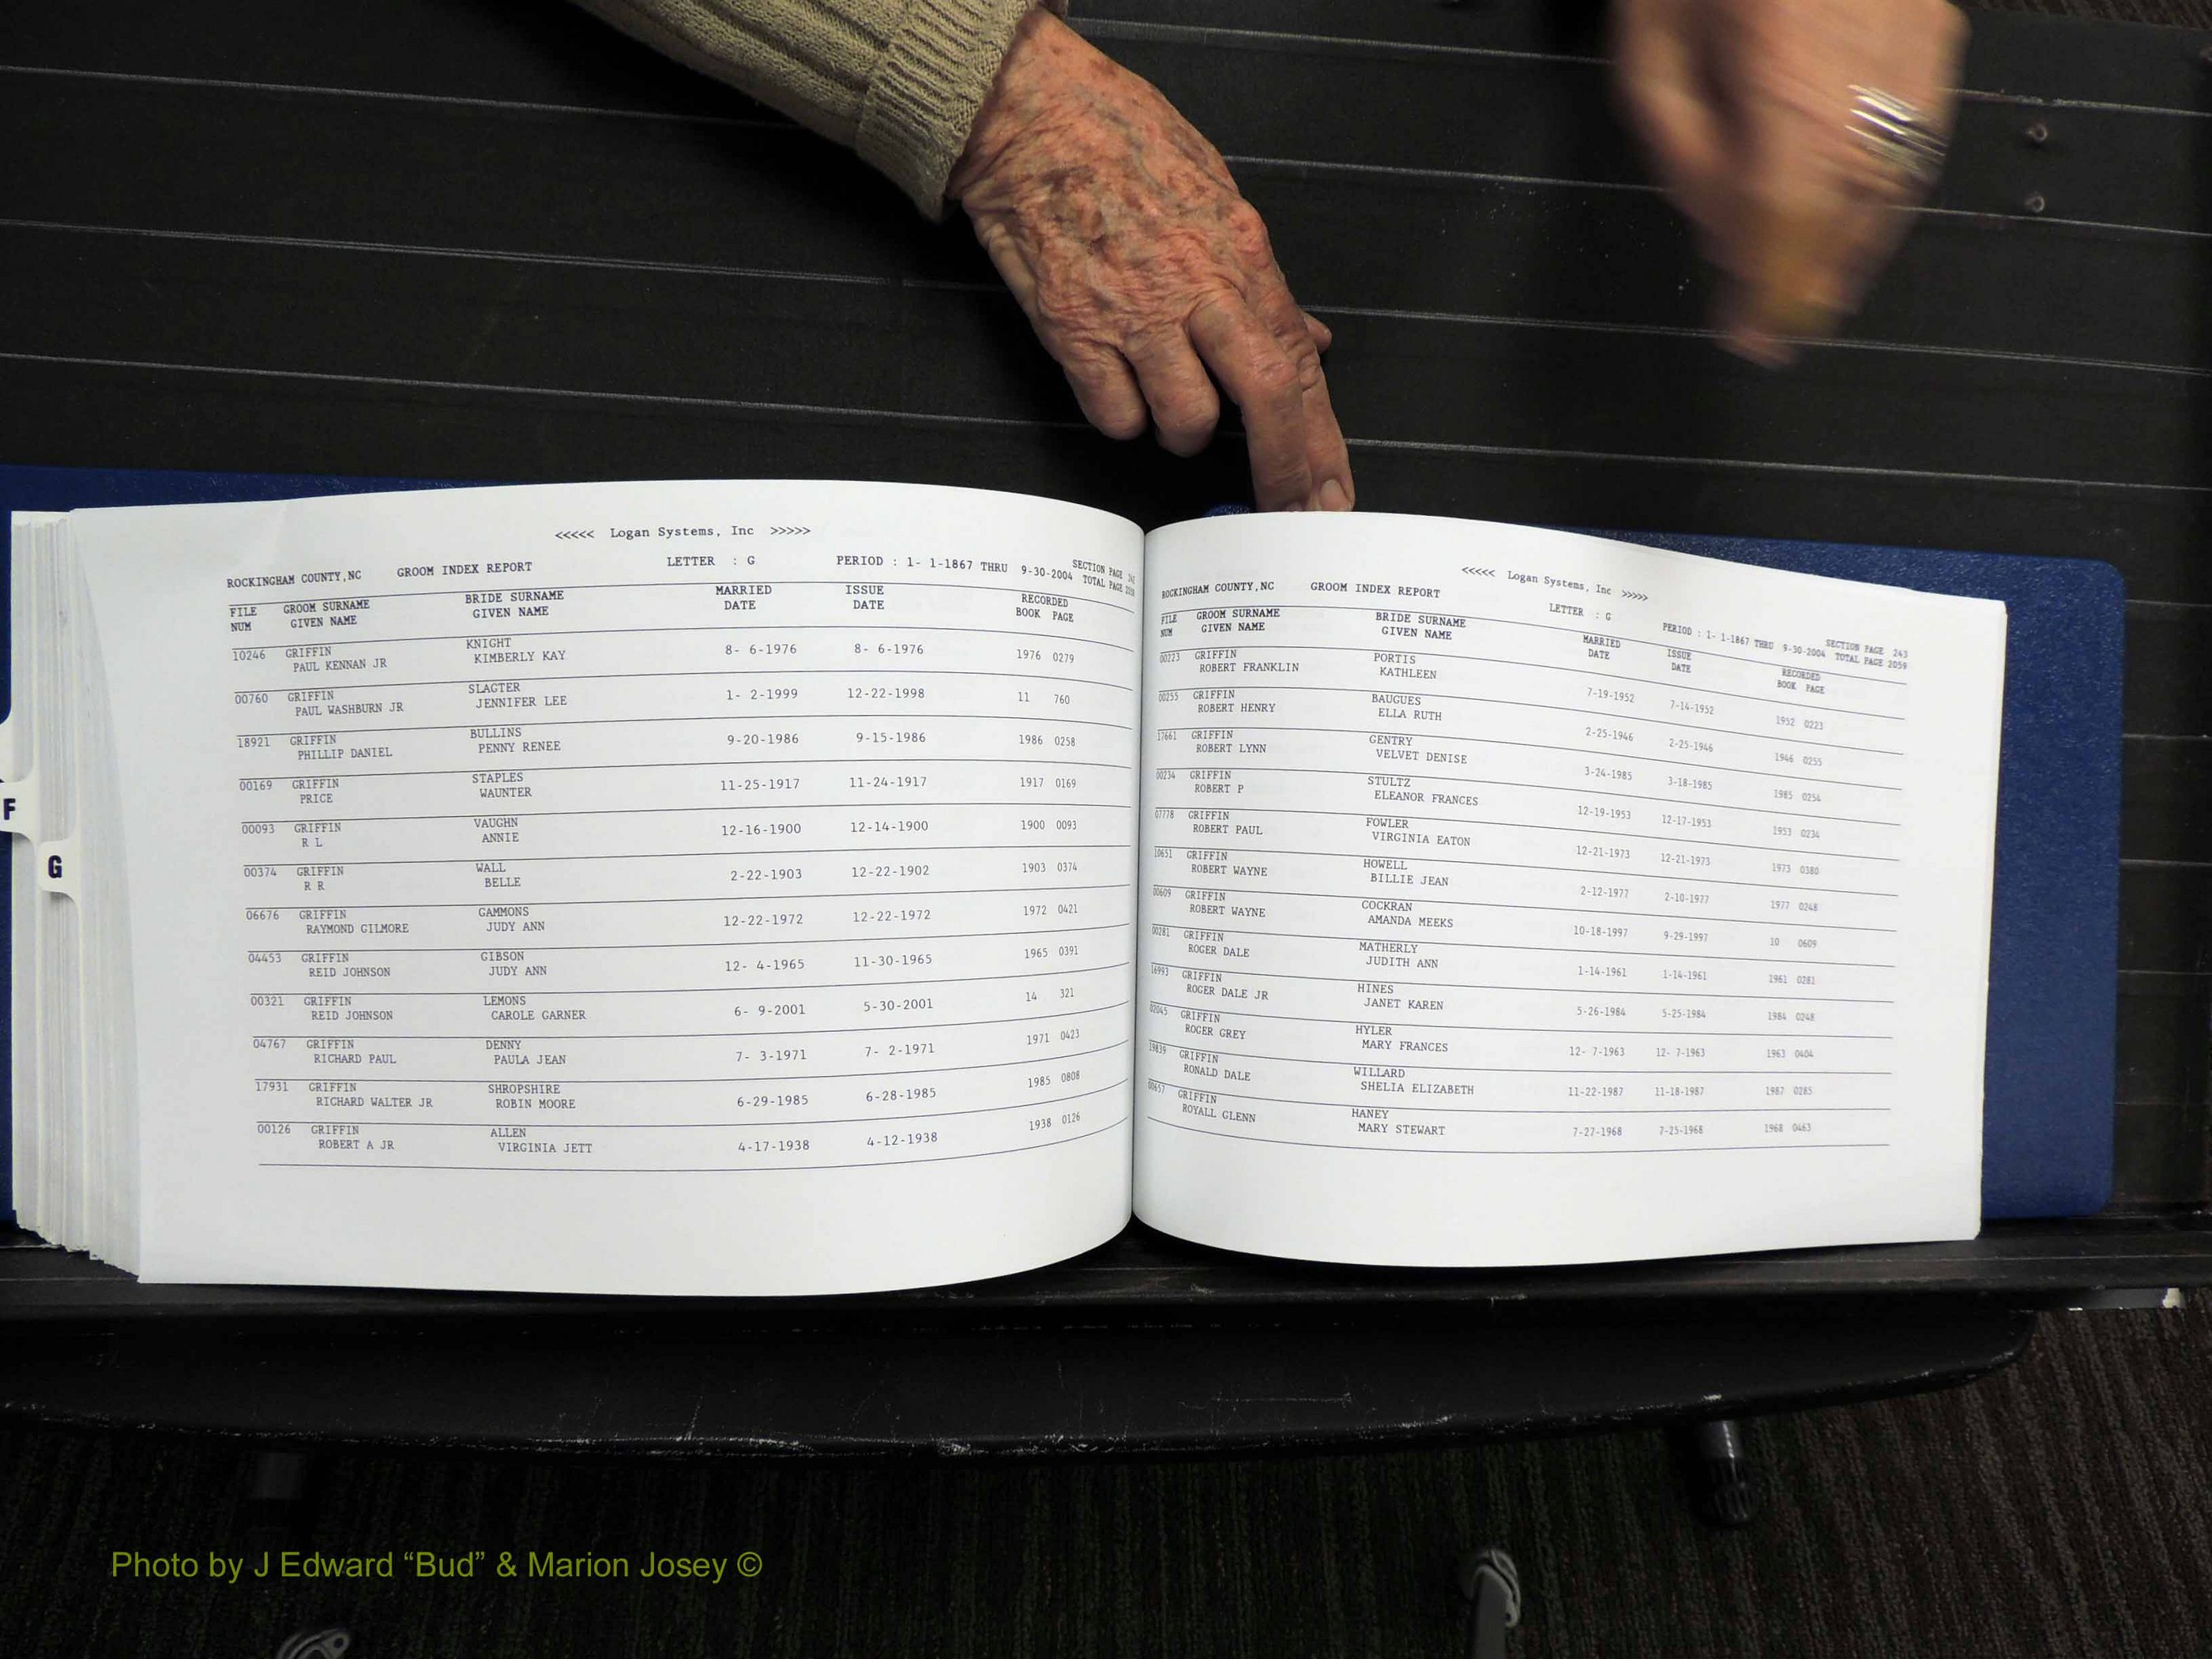 <<<<< Logan Systems, Inc >>>>>
ROCKINGHAM COUNTY,NC GROOM INDEX REPORT LETTER : G PERIOD : 1- 1-1867 THRU 9-30-2004 SECTION PAGE
TOTAL PAGE 2059
FILE GROOM SURNAME BRIDE SURNAME MARRIED ISSUE RECORDED
NUM GIVEN NAME GIVEN NAME DATE DATE BOOK PAGE
10246 GRIFFIN KNIGHT 8- 6-1976 8- 6-1976 1976 0279
PAUL KENNAN JR KIMBERLY KAY
00760 GRIFFIN SLAGTER 1- 2-1999 12-22-1998 11 760
PAUL WASHBURN JR JENNIFER LEE
18921 GRIFFIN BULLINS 9-20-1986 9-15-1986 1986 0258
PHILLIP DANIEL PENNY RENEE
00169 GRIFFIN STAPLES 11-25-1917 11-24-1917 1917 0169
PRICE WAUNTER
00093 GRIFFIN VAUGHN 12-16-1900 12-14-1900 1900 0093
R L ANNIE
00374 GRIFFIN WALL 2-22-1903 12-22-1902 1903 0374
R R BELLE
06676 GRIFFIN GAMMONS 12-22-1972 12-22-1972 1972 0421
RAYMOND GILMORE JUDY ANN
04453 GRIFFIN GIBSON 12- 4-1965 11-30-1965 1965 0391
REID JOHNSON JUDY ANN
00321 GRIFFIN LEMONS 6- 9-2001 5-30-2001 14 321
REID JOHNSON CAROLE GARNER
04767 GRIFFIN DENNY 7- 3-1971 7- 2-1971 1971 0423
RICHARD PAUL PAULA JEAN
17931 GRIFFIN SHROPSHIRE 6-29-1985 6-28-1985 1985 0808
RICHARD WALTER JR ROBIN MOORE
00126 GRIFFIN ALLEN 4-17-1938 4-12-1938 1938 0126
ROBERT A JR VIRGINIA JETT
F
G
<<<<< Logan Systems, Inc >>>>>
ROCKINGHAM COUNTY,NC GROOM INDEX REPORT LETTER : G PERIOD : 1- 1-1867 THRU 9-30-2004 SECTION PAGE 243
TOTAL PAGE 2059
FILE GROOM SURNAME BRIDE SURNAME MARRIED ISSUE RECORDED
NUM GIVEN NAME GIVEN NAME DATE DATE BOOK PAGE
00223 GRIFFIN PORTIS 7-19-1952 7-14-1952 1952 0223
ROBERT FRANKLIN KATHLEEN
00255 GRIFFIN BAUGUES 2-25-1946 2-25-1946 1946 0255
ROBERT HENRY ELLA RUTH
17661 GRIFFIN GENTRY 3-24-1985 3-18-1985 1985 0254
ROBERT LYNN VELVET DENISE
00234 GRIFFIN STULTZ 12-19-1953 12-17-1953 1953 0234
ROBERT P ELEANOR FRANCES
07778 GRIFFIN FOWLER 12-21-1973 12-21-1973 1973 0380
ROBERT PAUL VIRGINIA EATON
10651 GRIFFIN HOWELL 2-12-1977 2-10-1977 1977 0248
ROBERT WAYNE BILLIE JEAN
00609 GRIFFIN COCKRAN 10-18-1997 9-29-1997 10 0609
ROBERT WAYNE AMANDA MEEKS
00281 GRIFFIN MATHERLY 1-14-1961 1-14-1961 1961 0281
ROGER DALE JUDITH ANN
16993 GRIFFIN HINES 5-26-1984 5-25-1984 1984 0248
ROGER DALE JR JANET KAREN
02045 GRIFFIN HYLER 12- 7-1963 12- 7-1963 1963 0404
ROGER GREY MARY FRANCES
19839 GRIFFIN WILLARD 11-22-1987 11-18-1987 1987 0285
RONALD DALE SHELIA ELIZABETH
00657 GRIFFIN HANEY 7-27-1968 7-25-1968 1968 0463
ROYALL GLENN MARY STEWART
Photo by J Edward “Bud” & Marion Josey ©